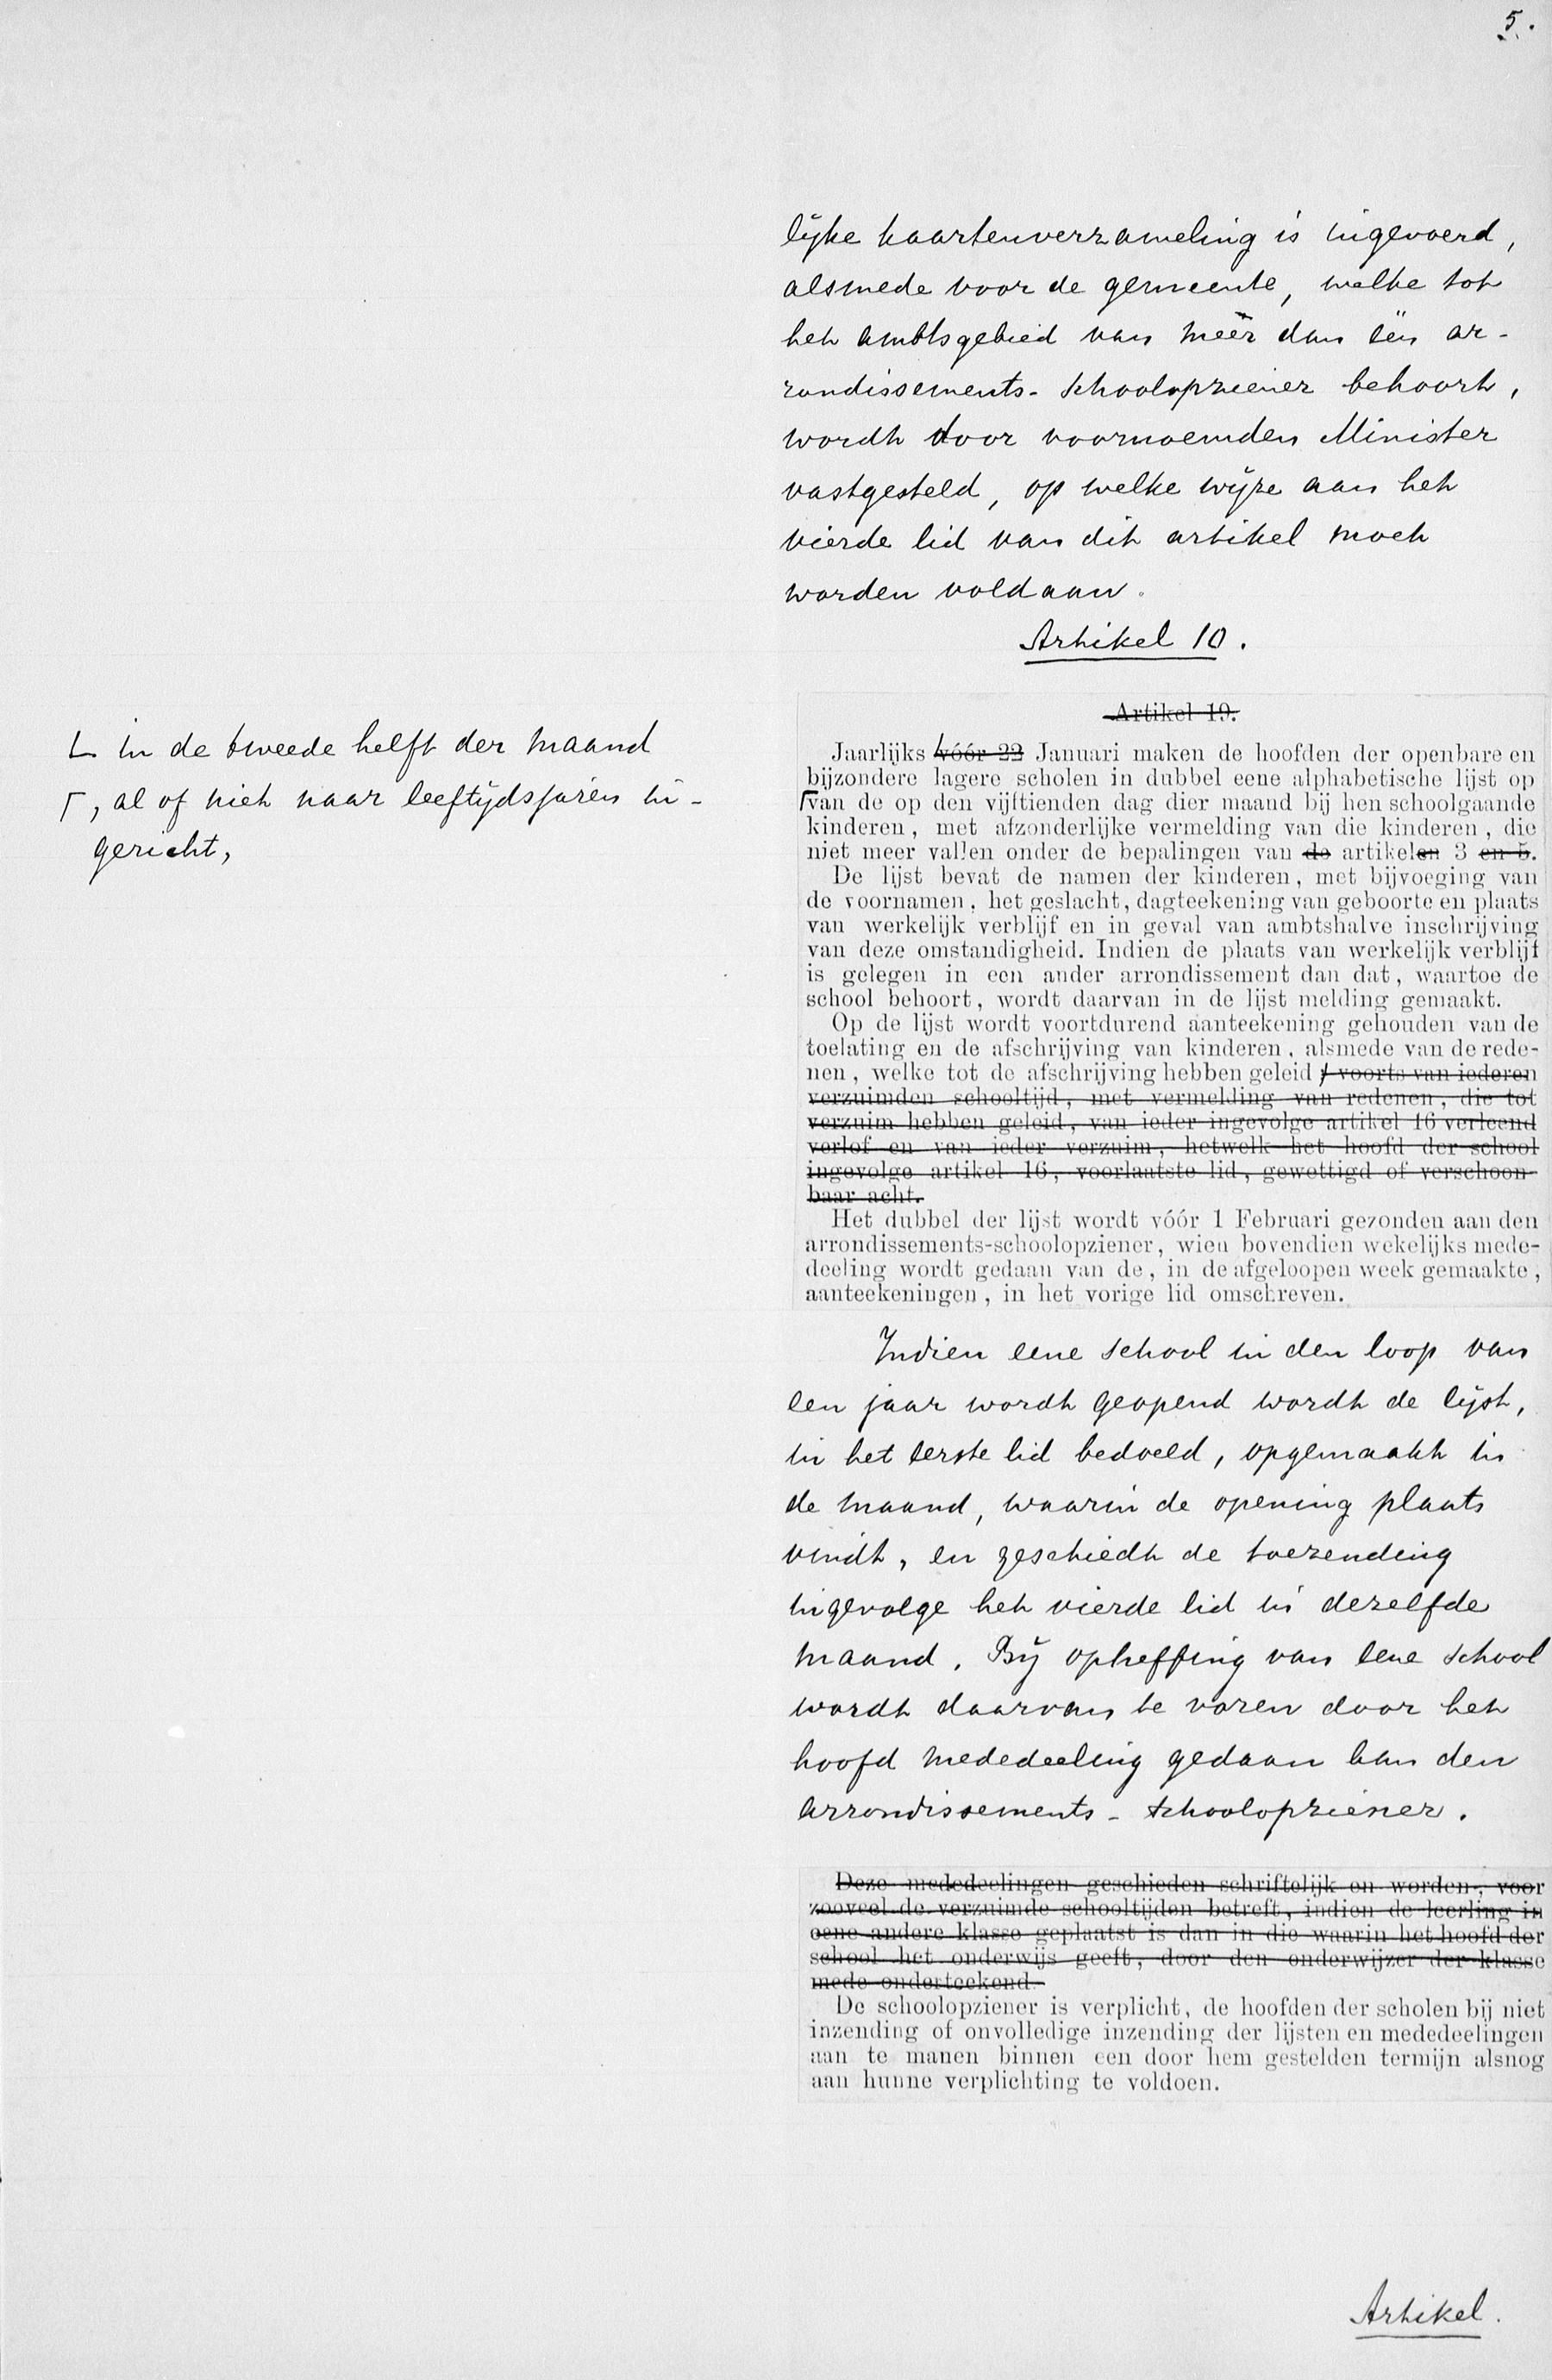 5.
lijke kaartenverzameling is ingevoerd,
alsmede voor de gemeente, welke tot
het ambtsgebied van meer dan één ar-
rondissements-schoolopziener behoort,
wordt door voornoemden Minister
vastgesteld, op welke wijze aan het
vierde lid van dit artikel moet
worden voldaan.
Artikel 10.
Artikel 19.
Jaarlijks vóór 22 Januari maken de hoofden der openbare en
bijzondere lagere scholen in dubbel eene alphabetische lijst op
van de op den vijftienden dag dier maand bij hen schoolgaande
kinderen, met afzonderlijke vermelding van die kinderen, die
niet meer vallen onder de bepalingen van de artikelen 3 en 5.
L in de tweede helft der maand
Γ, al of niet naar leeftijdsjaren in-
gericht,
De lijst bevat de namen der kinderen, met bijvoeging van
de voornamen, het geslacht, dagteekening van geboorte en plaats
van werkelijk verblijf en in geval van ambtshalve inschrijving
van deze omstandigheid. Indien de plaats van werkelijk verblijf
is gelegen in een ander arrondissement dan dat, waartoe de
school behoort, wordt daarvan in de lijst melding gemaakt.
Op de lijst wordt voortdurend aanteekening gehouden van de
toelating en de afschrijving van kinderen, alsmede van de rede-
nen, welke tot de afschrijving hebben geleid, voorts van iederen
verzuimden schooltijd, met vermelding van redenen, die tot
verzuim hebben geleid, van ieder ingevolge artikel 16 verleend
verlof en van ieder verzuim, hetwelk het hoofd der school
ingevolge artikel 16, voorlaatste lid, gewettigd of verschoon-
baar acht.
Het dubbel der lijst wordt vóór 1 Februari gezonden aan den
arrondissements-schoolopziener, wien bovendien wekelijks mede-
deeling wordt gedaan van de, in de afgeloopen week gemaakte,
aanteekeningen, in het vorige lid omschreven.
Indien eene school in den loop van
een jaar wordt geopend wordt de lijst,
in het eerste lid bedoeld, opgemaakt in
de maand, waarin de opening plaats
vindt, en geschiedt de toezending
ingevolge het vierde lid in dezelfde
maand. Bij opheffing van eene school
wordt daarvan te voren door het
hoofd mededeeling gedaan aan den
arrondissements-schoolopziener.
Deze mededeelingen geschieden schriftelijk en worden, voor
zooveel de verzuimde schooltijden betreft, indien de leerling in
eene andere klasse geplaatst is dan in die waarin het hoofd der
school het onderwijs geeft, door den onderwijzer der klasse
mede onderteekend.
De schoolopziener is verplicht, de hoofden der scholen bij niet
inzending of onvolledige inzending der lijsten en mededeelingen
aan te manen binnen een door hem gestelden termijn alsnog
aan hunne verplichting te voldoen.
Artikel.